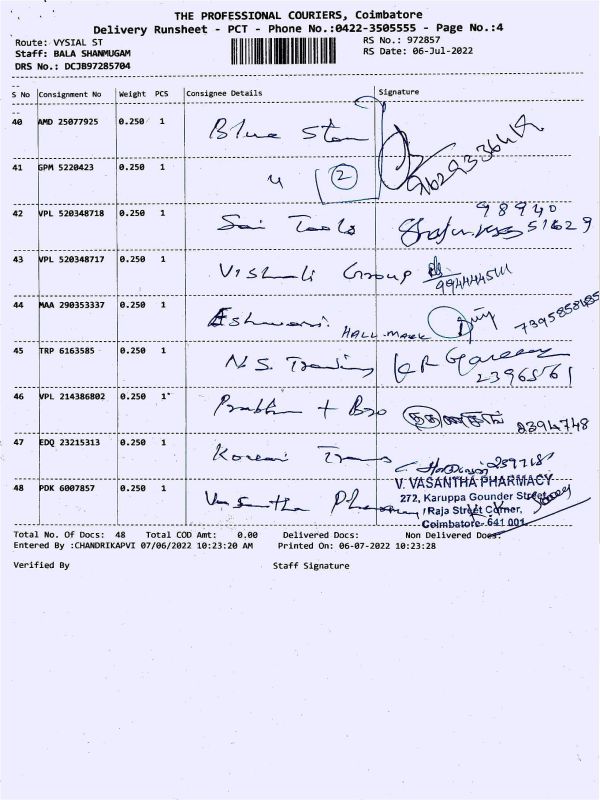 THE PROFESSIONAL COURIERS, Coimbatore
Delivery Runsheet - PCT - Phone No.:0422-3505555 - Page No.:4
Route: VYSIAL ST
RS No.: 972857
Staff: BALA SHANMUGAM
RS Date: 06-Jul-2022
DRS No.: DCJB97285704
S No Consignment No Weight PCS Consignee Details Signature
40 AMD 25077925 0.250 1 Blue Star
41 GPM 5220423 0.250 1 " 2
42 VPL 520348718 0.250 1 Sai Tools 98940 51629
43 VPL 520348717 0.250 1 Vishali Group
44 MAA 290353337 0.250 1 Eshwari HALL MARK 7395858485
45 TRP 6163585 0.250 1 N.S. Trading 2396561
46 VPL 214386802 0.250 1 Prabhu + Bro 2394748
47 EDQ 23215313 0.250 1 Korean Trans
48 PDK 6007857 0.250 1 Vasantha Pharmacy
V. VASANTHA PHARMACY
272, Karuppa Gounder Street
/ Raja Street Corner,
Coimbatore- 641 001
Total No. Of Docs: 48 Total COD Amt: 0.00 Delivered Docs: Non Delivered Docs:
Entered By :CHANDRIKAPVI 07/06/2022 10:23:20 AM Printed On: 06-07-2022 10:23:28
Verified By Staff Signature